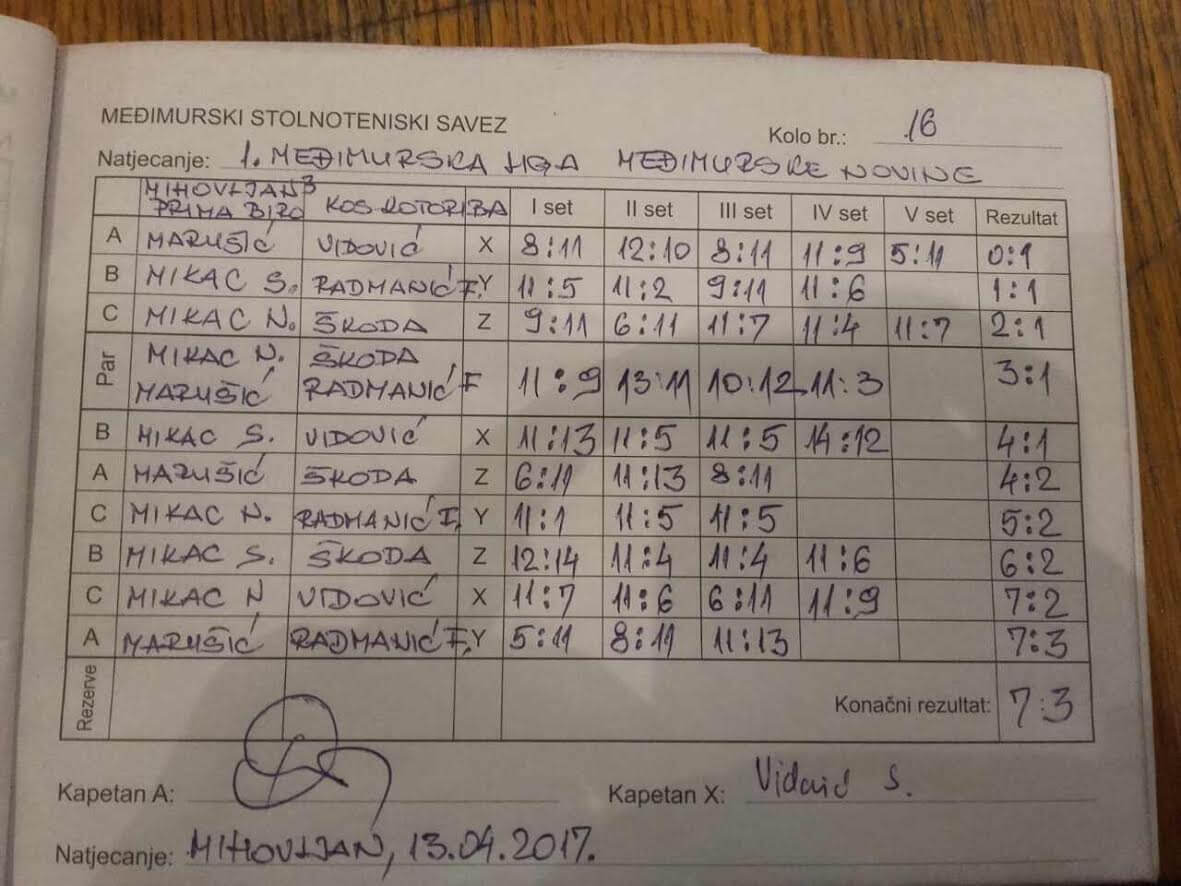 MEĐIMURSKI STOLNOTENISKI SAVEZ
Kolo br.: 16
Natjecanje: 1. MEĐIMURSKA LIGA MEĐIMURSKE NOVINE
MIHOVLJAN 3 PRIMA BIRO KOS KOTORIBA I set II set III set IV set V set Rezultat
A MARUŠIĆ VIDOVIĆ X 8:11 12:10 8:11 11:9 5:11 0:1
B MIKAC S. RADMANIĆ F. Y 11:5 11:2 9:11 11:6 1:1
C MIKAC N. ŠKODA Z 9:11 6:11 11:7 11:4 11:7 2:1
Par MIKAC N. ŠKODA
MARUŠIĆ RADMANIĆ F 11:9 13:11 10:12 11:3 3:1
B MIKAC S. VIDOVIĆ X 11:13 11:5 11:5 14:12 4:1
A MARUŠIĆ ŠKODA Z 6:11 11:13 8:11 4:2
C MIKAC N. RADMANIĆ I. Y 11:1 11:5 11:5 5:2
B MIKAC S. ŠKODA Z 12:14 11:4 11:4 11:6 6:2
C MIKAC N VIDOVIĆ X 11:7 11:6 6:11 11:9 7:2
A MARUŠIĆ RADMANIĆ F. Y 5:11 8:11 11:13 7:3
Rezerve Konačni rezultat: 7:3
Kapetan A:
Kapetan X: Vidović S.
Natjecanje: MIHOVLJAN, 13.04.2017.